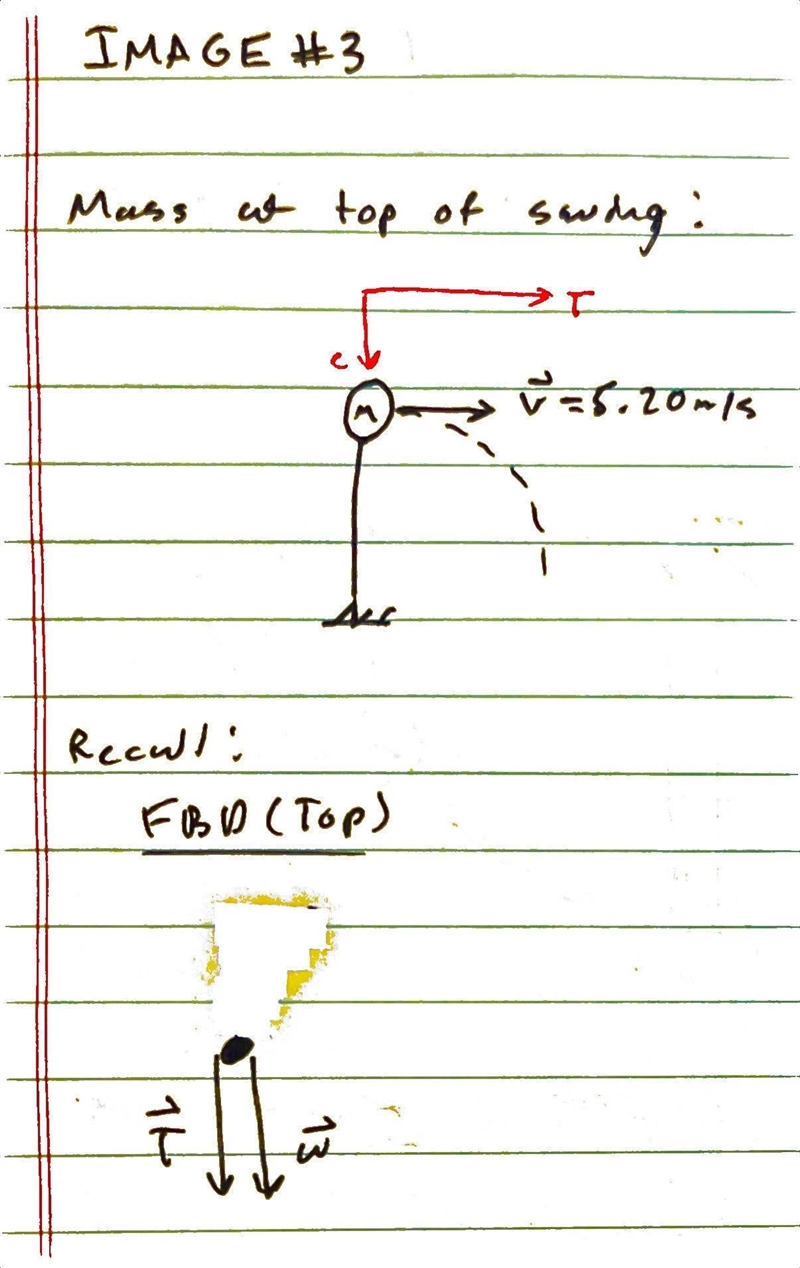 IMAGE #3
Mass at top of swing:
T
c
M
v⃗ = 5.20 m/s
Recall:
FBD (Top)
T⃗
w⃗